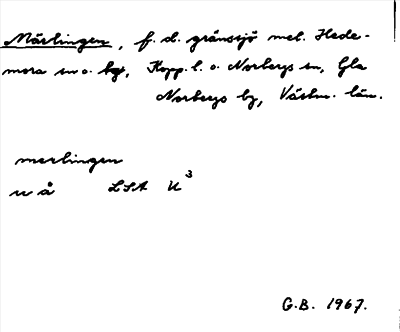 Märlingen, f. d. gränssjö mel. Hede-
mora sn o. by, Kopp. l. o. Norbergs sn, Gla
Norbergs by, Västm. län.
merlingen
u å LSA U3
G.B. 1967.